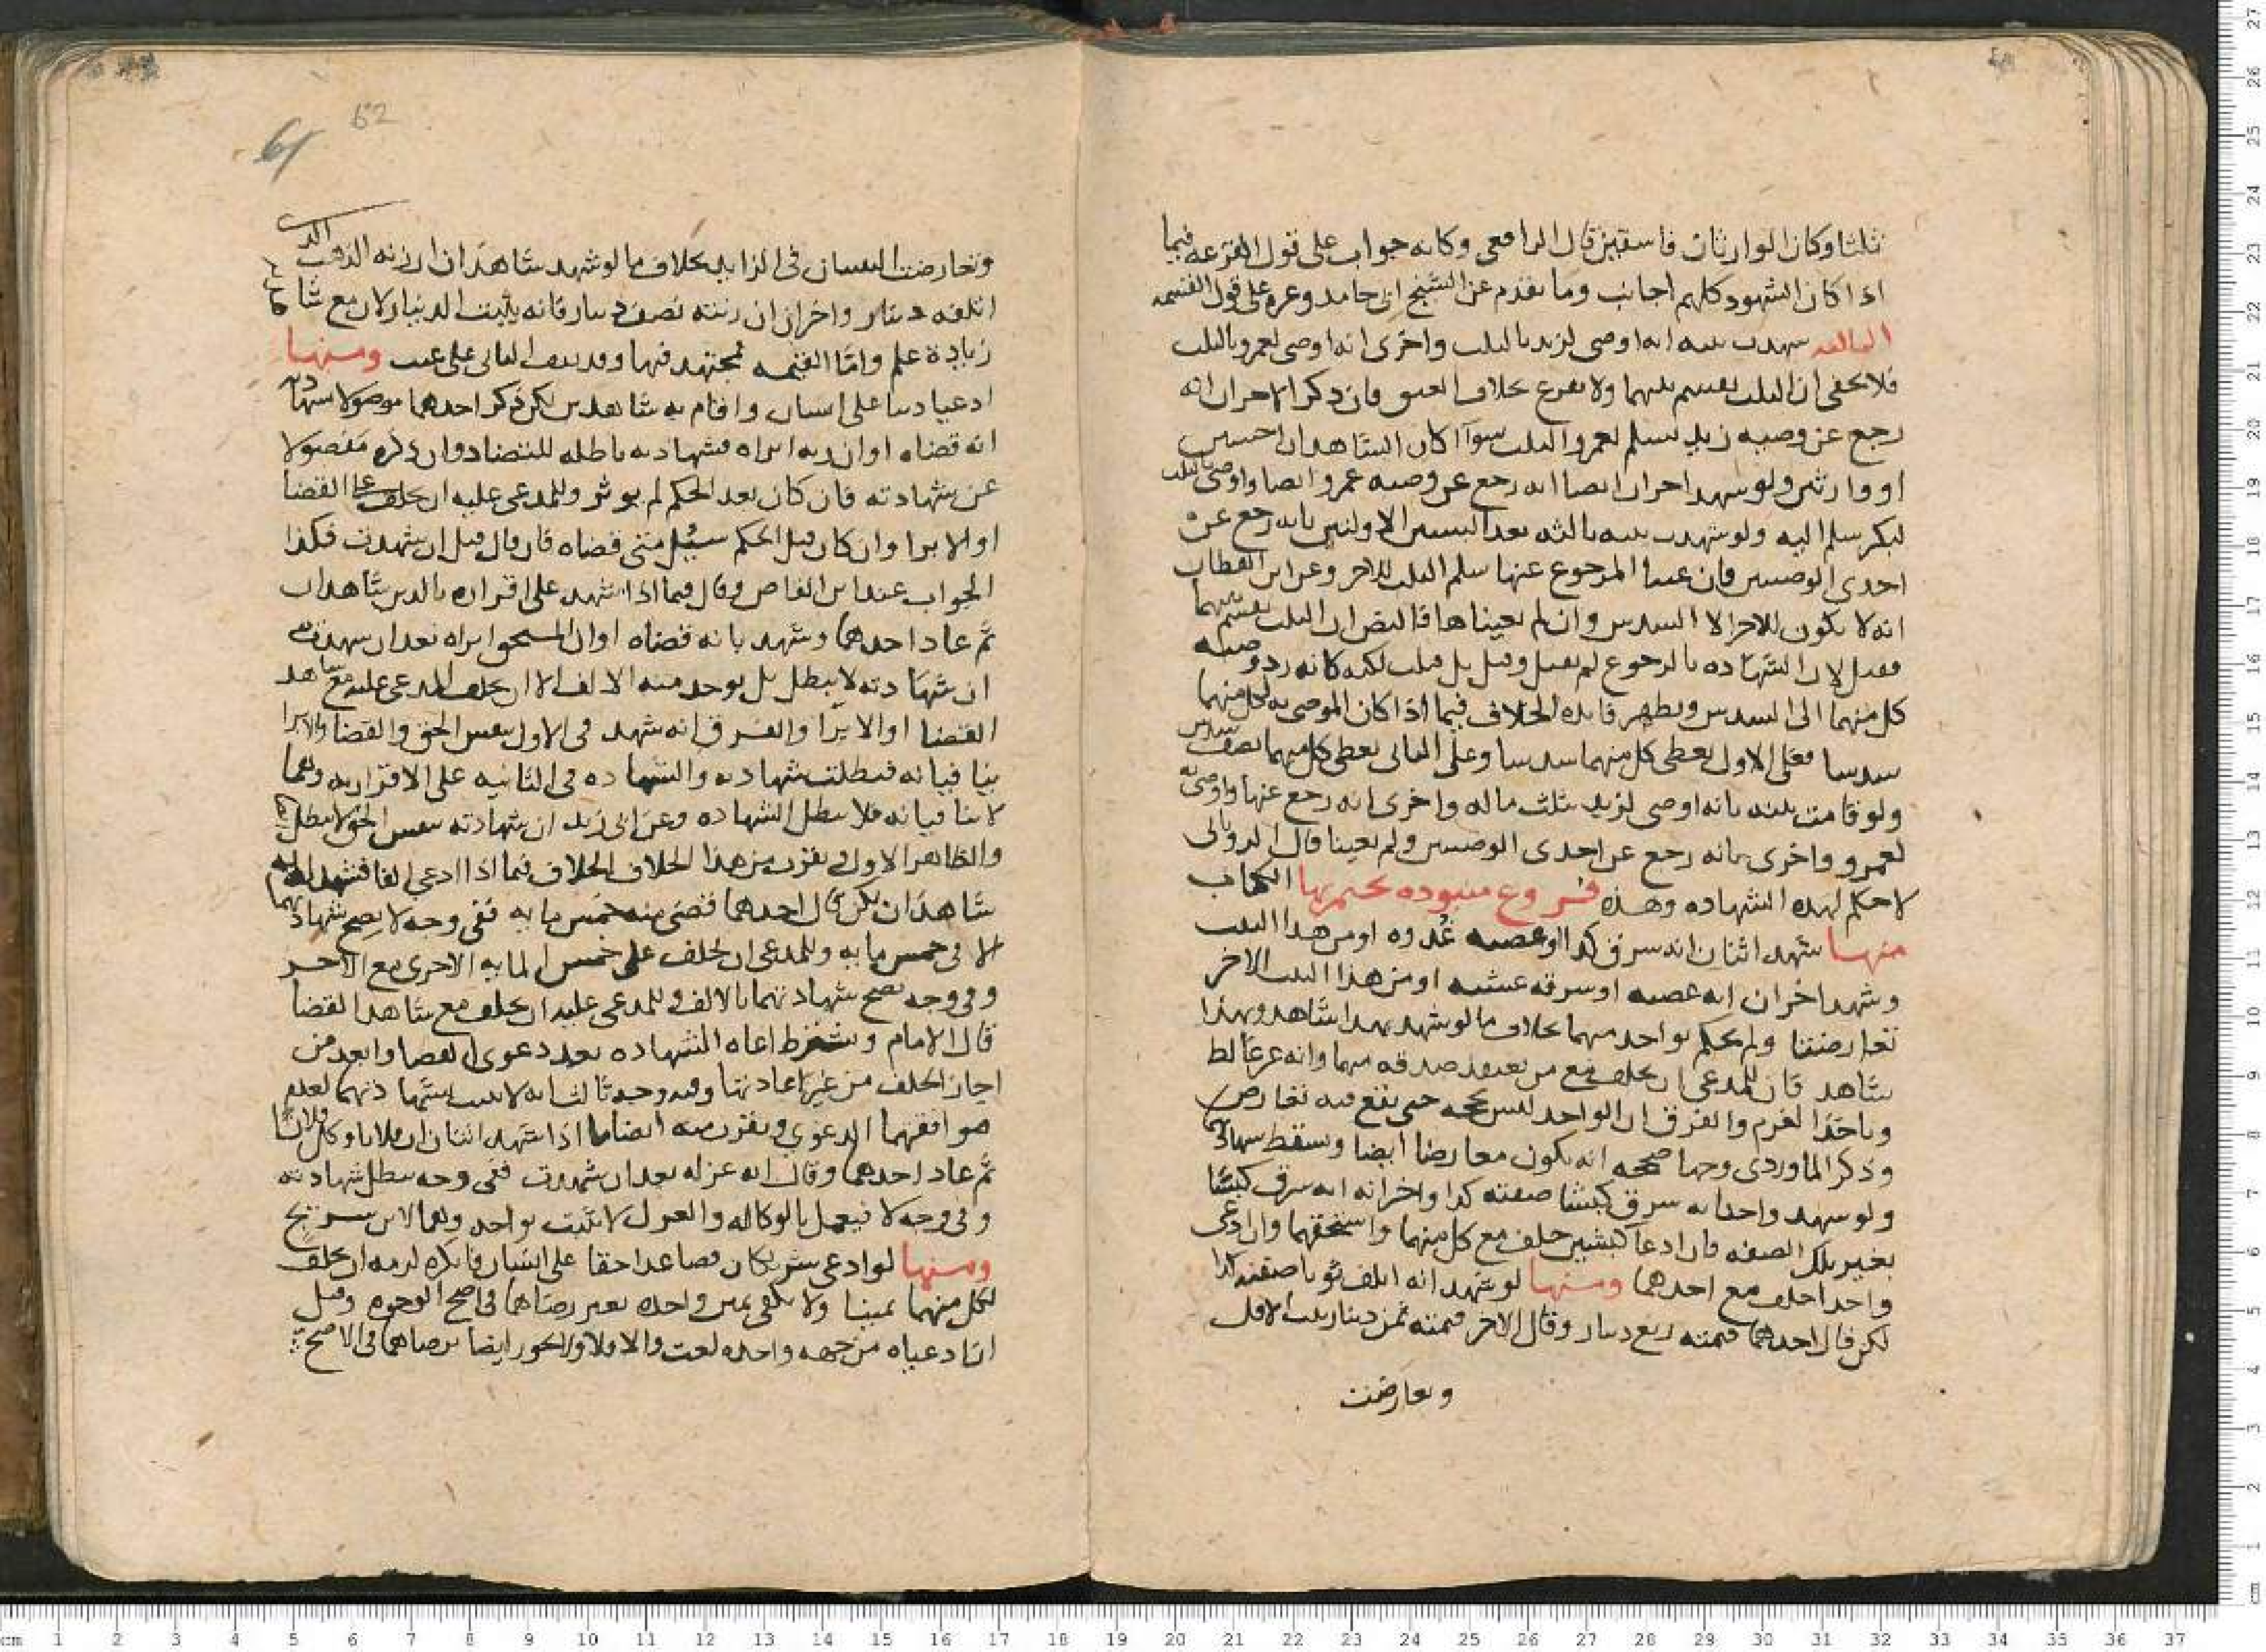 ثلثا وكان الوارثان فاسقين قال الرافعي وكانه جواب على قول القرعه فيما
اذا كان الشهود كلهم اجانب وما تقدم عن الشيخ ابى حامد وغيره على قول القسمه
الثالثه شهدت بينه انه اوصى لزيد بالثلث واخرى انه اوصى لعمرو بالثلث
فلا يخفى ان الثلث يقسم بينهما ولا يقرع بخلاف العتق فان ذكر الاخران انه
رجع عن وصيه زيد سلم لعمرو الثلث سوآ اكان الشاهدان اجنبيين
او وارثين ولو شهد اخران ايضا انه رجع عن وصيه عمرو ايضا واوصى بالثلث
لبكر سلم اليه ولو شهدت بينه ثالثه بعد البينتين الاولتين بانه رجع عن
احدى الوصيتين فان عينا المرجوع عنها سلم الثلث للاخر وعن ابن القطان
انه لا يكون للاخر الا السدس وان لم يعيناها فالنص ان الثلث يقسم بينهما
فقيل لان الشهاده بالرجوع لم تقبل وقيل بل قبلت لكنه كانه رد وصيه
كل منهما الى السدس ويظهر فايده الخلاف فيما اذا كان الموصى به لكل منهما
سدسا فعلى الاول يعطى كل منهما سدسا وعلى الثانى يعطى كل منهما نصف سدس
ولو قامت بينه بانه اوصى لزيد بثلث ماله واخرى انه رجع عنها واوصى به
لعمرو واخرى بانه رجع عن احدى الوصيتين ولم يعينا قال الرويانى
لا حكم لهذه الشهاده وهذه فروع منبوده نختم بها الكتاب
منها شهد اثنان انه سرق كذا او غصبه غدوه او من هذا البيت
وشهد اخران انه غصبه او سرقه عشيه او من هذا البيت الاخر
تعارضتا ولم يحكم بواحد منهما بخلاف ما لو شهد بهذا شاهد وبهذا
شاهد فان للمدعى ان يحلف مع من يعتقد صدقه منهما وانه غير غالط
وياخذ الغرم والفرق ان الواحد ليس بحجه حتى يقع فيه تعارض
وذكر الماوردى وجها صححه انه يكون معارضا ايضا ويسقط شهادتهما
ولو شهد واحد انه سرق كبشا صفته كذا واخر انه سرق كبشا
بغير تلك الصفه فان ادعا كبشين حلف مع كل منهما واستحقهما وان ادعى
واحدا حلف مع احدهما ومنها لو شهد انه اتلف ثوبا صفته كذا
لكن قال احدهما قيمته ربع دينار وقال الاخر قيمته ثمن دينار يثبت الاقل
وتعارضت
62
61
وتعارضت البينتان فى الزايد بخلاف ما لو شهد شاهدان ان زنه الذهب الذى
اتلفه دينار واخران ان زنته نصف دينار فانه يثبت الدينار لان مع شا
زيادة علم واما القيمه فمجتهد فيها ومنها
ادعيا دينا على انسان واقام به شاهدين لكن ذكر احدهما موصولا بشهادته
انه قضاه او ان ربه ابراه فشهادته باطله للتضاد وان ذكره مفصولا
عن شهادته فان كان بعد الحكم لم يوثر وللمدعى عليه ان يحلف على القضا
او الابرا وان كان قبل الحكم سيل متى قضاه فان قال قبل ان شهدت فكذا
الجواب عند ابن القاص وقال فيما اذا شهد على اقراره بالدين شاهدان
ثم عاد احدهما وشهد بانه قضاه او ان المستحق ابراه بعد ان شهدت
ان شهادته لا تبطل بل يوخذ منه الالف الا ان يحلف المدعى عليه مع شاهد
القضا او الابرا والفرق انه شهد فى الاول بنفس الحق والقضا والابرا
ينافيانه فبطلت شهادته والشهاده فى الثانيه على الاقرار به وهما
لا ينافيانه فلا تبطل الشهاده وعن ابى زيد ان شهادته بنفس الحق لا تبطل
والظاهر الاول ويقرب من هذا الخلاف الخلاف فيما اذا ادعى الفا فشهد له به
شاهدان لكن قال احدهما قضى منه خمس مايه ففى وجه لا يصح شهادتهما
الا فى خمس مايه وللمدعى ان يحلف على خمس المايه الاخرى مع الاخر
وفى وجه تصح شهادتهما بالالف وللمدعى عليه ان يحلف مع شاهد القضا
قال الامام ويشترط اعاه الشهاده بعد دعوى القضا وابعد من
اجاز الحلف من غير اعادتها وفيه وجه ثالث انه لا يثبت بشهادتهما لعدم
موافقهما الدعوى ويقرب منه ايضا ما اذا شهد اثنان ان فلانا وكل فلانا
ثم عاد احدهما وقال انه عزله بعد ان شهدت ففى وجه تبطل شهادته
وفى وجه لا فيعمل بالوكاله والعزل لا يثبت بواحد وهما لابن سريج
ومنها لو ادعى شريكان فصاعدا حقا على انسان فانكره لزمه ان يحلف
لكل منهما يمينا ولا يكفى يمين واحده بغير رضاهما فى اصح الوجوه وقيل
ان ادعياه من جهه واحده كفت والا فلا ولا يجوز ايضا برضاهما فى الاصح